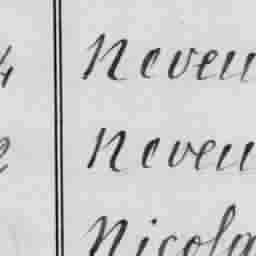 Neveu
Neveu
Nicola